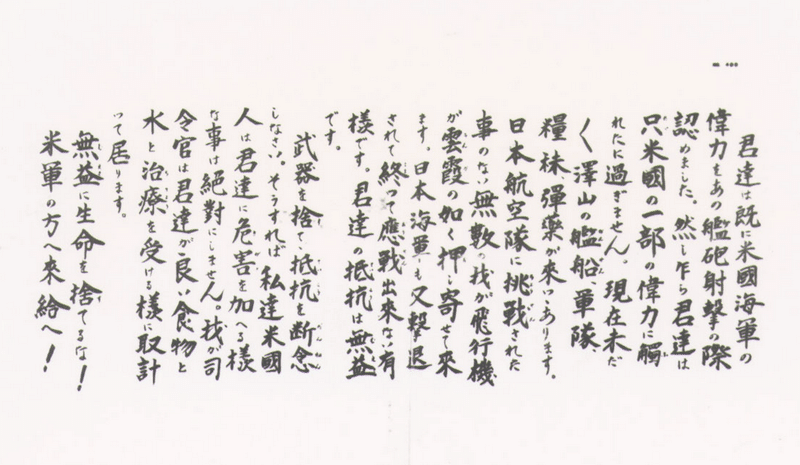 君達は既に米國海軍の
偉力をあの艦砲射撃の際
認めました。然し乍ら君達は
只米國の一部の偉力に觸
れたに過ぎません。現在未だ
〱澤山の艦船、軍隊、
糧秣彈藥が來つゝあります。
日本航空隊に挑戰された
事のない無數の我が飛行機
が雲霞の如く押し寄せて來
ます。日本海軍も又撃退
されて終つて應戰出來ない有
樣です。君達の抵抗は無益
です。
武器を捨て抵抗を断念
しなさい。そうすれば私達米國
人は君達に危害を加へる樣
な事は絕對にしません。我が司
令官は君達が良い食物と
水と治療を受ける樣に取計
つて居ります。
無益に生命を捨てるな!
米軍の方へ來給へ!